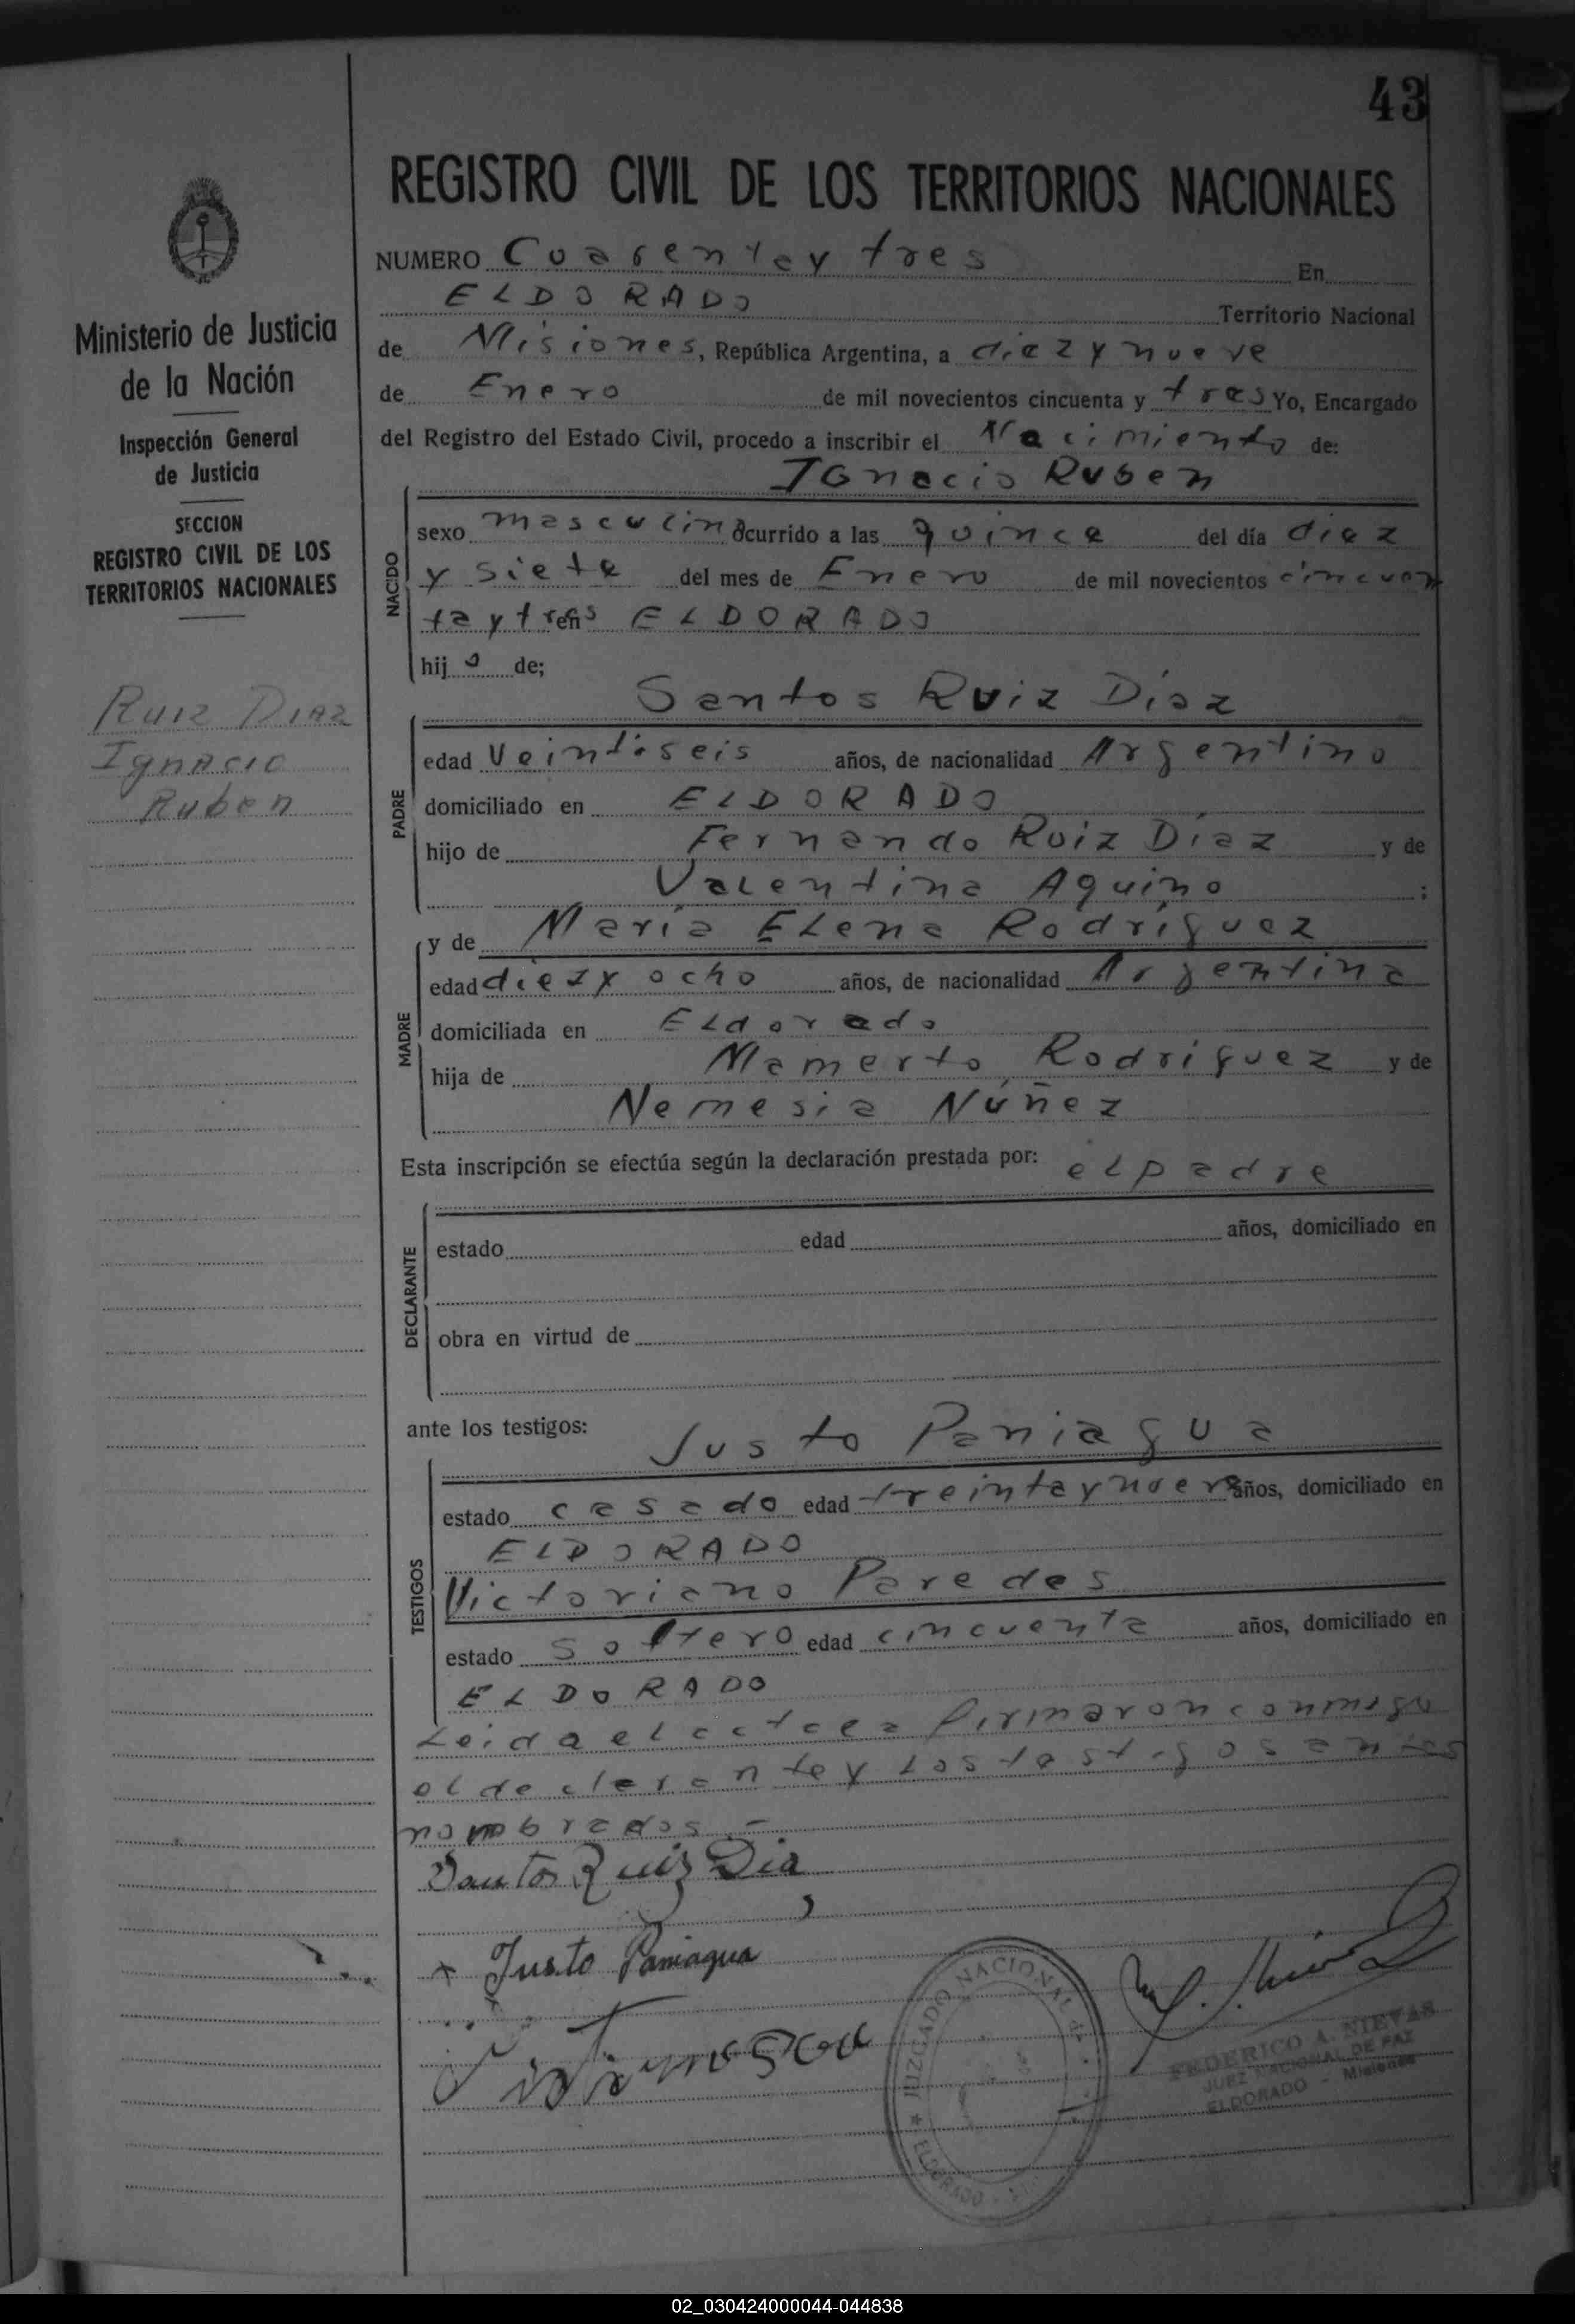 43
REGISTRO CIVIL DE LOS TERRITORIOS NACIONALES
Ministerio de Justicia
de la Nación
Inspección General
de Justicia
SECCION
REGISTRO CIVIL DE LOS
TERRITORIOS NACIONALES
Ruiz Diaz
Ignacio
Ruben
NUMERO Cuarenta y tres En
ELDORADO Territorio Nacional
de Misiones, República Argentina, a diez y nueve
de Enero de mil novecientos cincuenta y tres Yo, Encargado
del Registro del Estado Civil, procedo a inscribir el Nacimiento de:
Ignacio Ruben
NACIDO
sexo masculino ocurrido a las quince del día diez
y siete del mes de Enero de mil novecientos cincuen
ta y tres en ELDORADO
hijo de;
Santos Ruiz Díaz
PADRE
edad Veintiseis años, de nacionalidad Argentino
domiciliado en ELDORADO
hijo de Fernando Ruiz Díaz y de
Valentina Aquino ;
y de María Elena Rodríguez
MADRE
edad diez y ocho años, de nacionalidad Argentina
domiciliada en Eldorado
hija de Mamerto Rodríguez y de
Nemesia Núñez
Esta inscripción se efectúa según la declaración prestada por: el padre
DECLARANTE
estado edad años, domiciliado en
obra en virtud de
ante los testigos: Justo Paniagua
TESTIGOS
estado casado edad treinta y nueve años, domiciliado en
ELDORADO
Victoriano Paredes
estado soltero edad cincuenta años, domiciliado en
ELDORADO
Leida el acta la firmaron conmigo
el declarante y los testigos antes
nombrados.-
Santos Ruiz Dia
x Justo Paniagua
JUZGADO NACIONAL
ELDORADO
FEDERICO A. NIEVAS
JUEZ NACIONAL DE PAZ
ELDORADO - Misiones
02_030424000044-044838